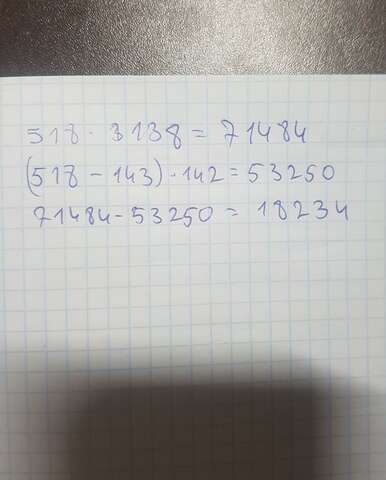 518 · 3138 = 71484
(518 - 143) · 142 = 53250
71484 - 53250 = 18234